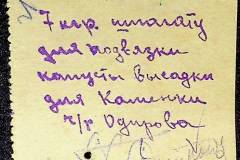 7 кгр. шпагату
для подвязки
капусты высадки
для Каменки
ч/р Одирова